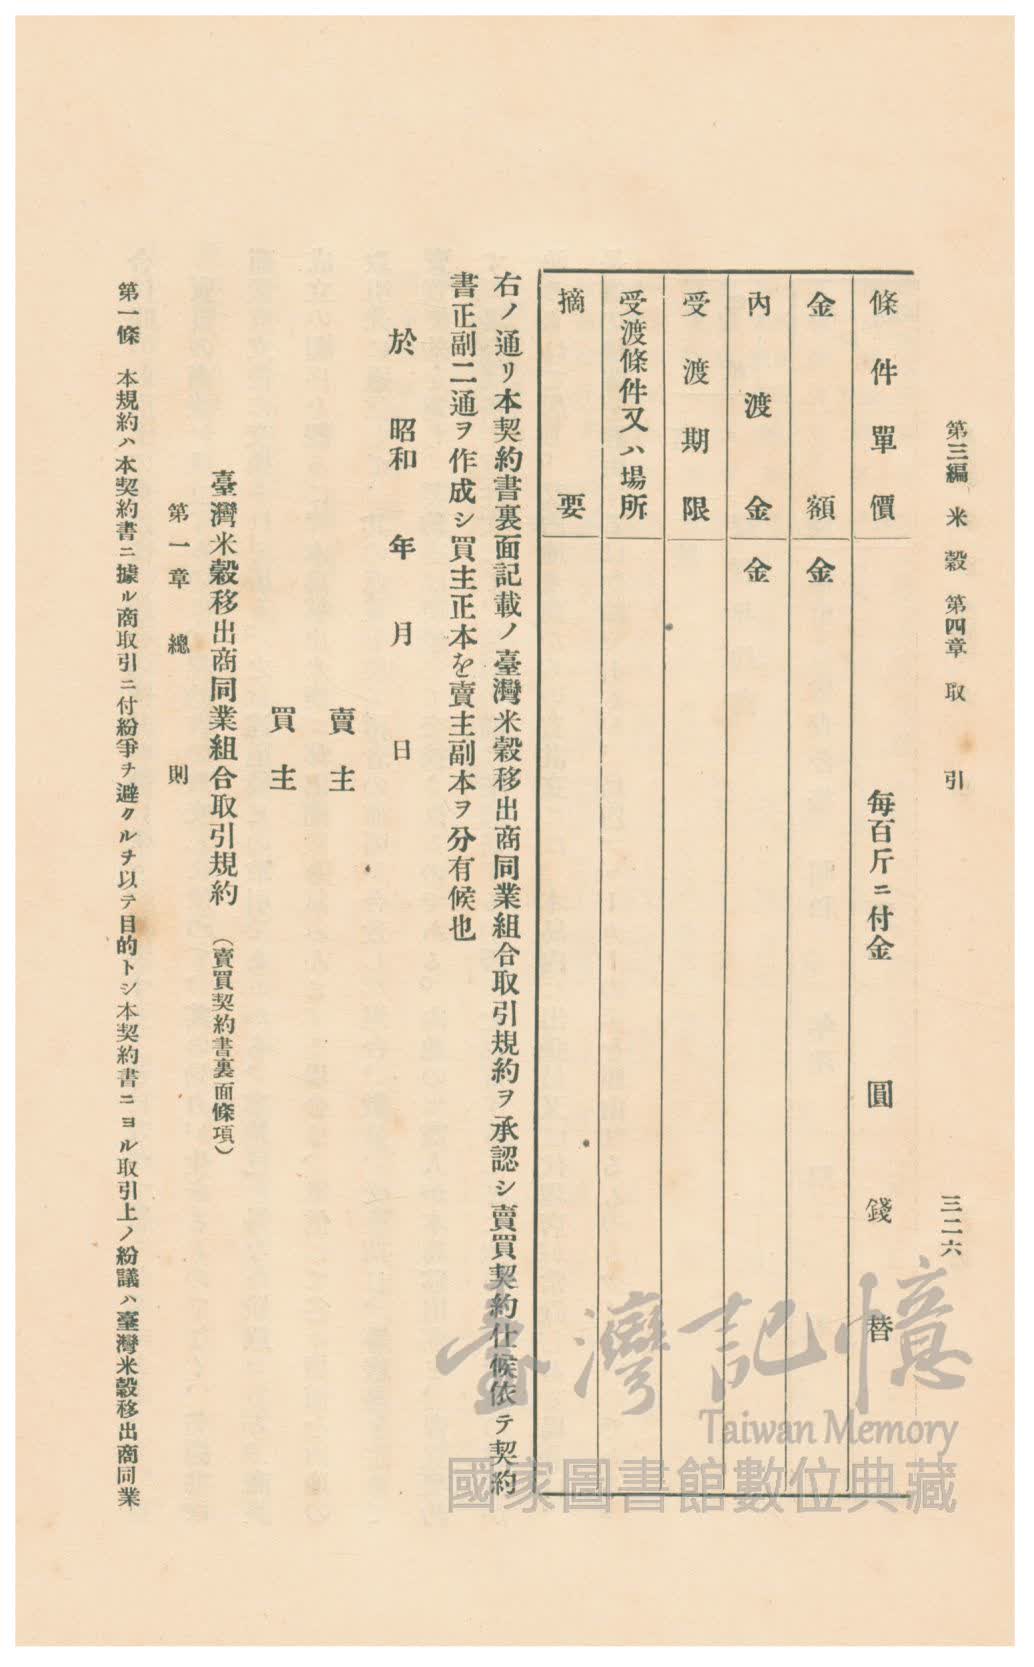 第三編 米穀 第四章 取引
三二六
條件單價 每百斤ニ付金 圓 錢 替
金額 金
內渡金 金
受渡期限
受渡條件又ハ場所
摘要
右ノ通リ本契約書裏面記載ノ臺灣米穀移出商同業組合取引規約ヲ承認シ賣買契約仕候依テ契約
書正副二通ヲ作成シ買主正本を賣主副本ヲ分有候也
於 昭和 年 月 日
賣主
買主
臺灣米穀移出商同業組合取引規約 (賣買契約書裏面條項)
第一章 總則
第一條 本規約ハ本契約書ニ據ル商取引ニ付紛爭ヲ避クルヲ以テ目的トシ本契約書ニヨル取引上ノ紛議ハ臺灣米穀移出商同業
臺灣記憶
Taiwan Memory
國家圖書館數位典藏